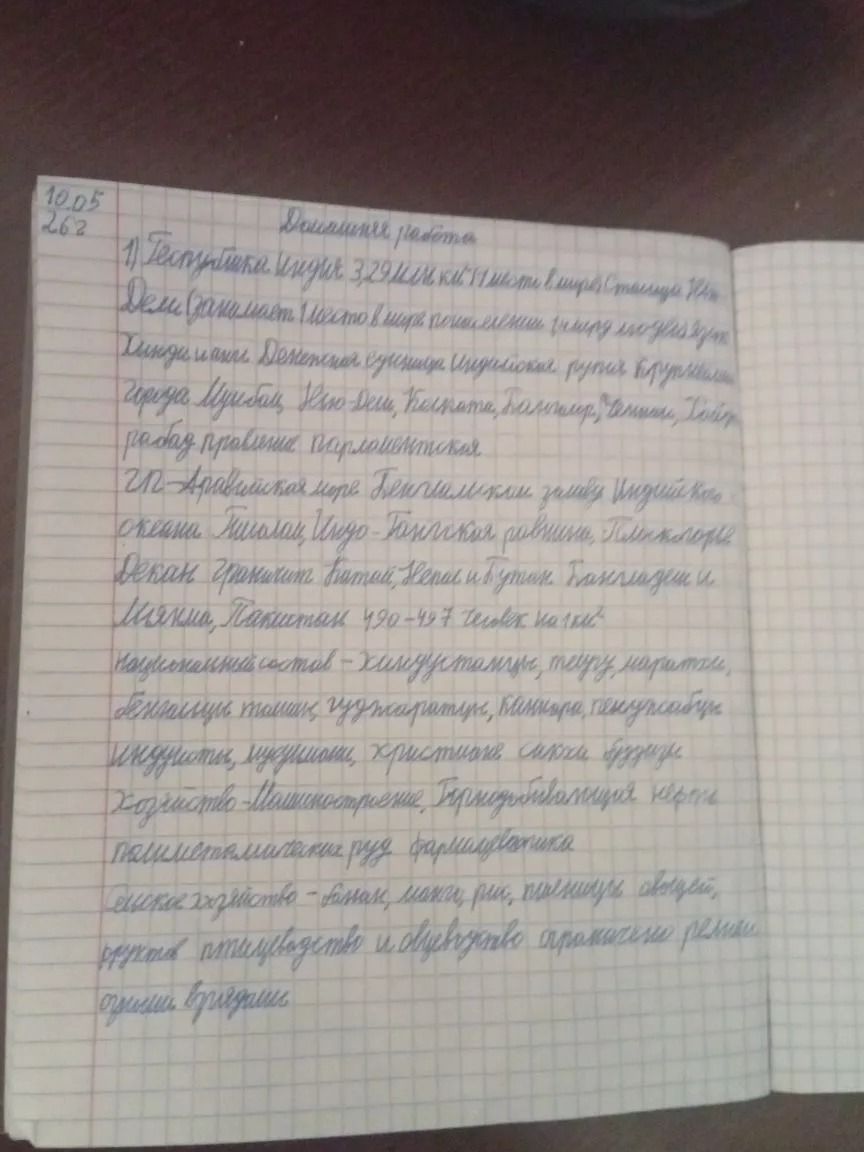 10.05
26г
Домашняя работа
1) Республика Индия 3,29 млн км² (7 место в мире) Столица Нью
Дели (занимает 1 место в мире по населению 1,4 млрд людей) Язык
Хинди и анг Денежная единица Индийская рупия Крупнейшие
города Мумбаи, Нью-Дели, Колката, Бангалор, Ченнаи, Хайде
рабад правление парламентская
ГП-Аравийская море Бенгальским заливу Индийского
океана Гималаи, Индо-Гангская равнина, Плоскогорье
Декан Граничит Китай, Непал и Бутан Бангладеш и
Мьянма, Пакистан 490-497 человек на 1 км²
национальный состав - хиндустанцы, телугу, маратхи,
бенгальцы тамилы, гуджаратцы, каннара, пенджабцы
индуисты, мусульмане, христиане сикхи буддизм
Хозяйство-Машиностроение, Горнодобывающая нефть
полиметаллических руд фармацевтика
Сельское хозяйство - банан, манго, рис, пшеницы овощей,
фруктов птицеводство и овцеводство ограничено религи
озными обрядами